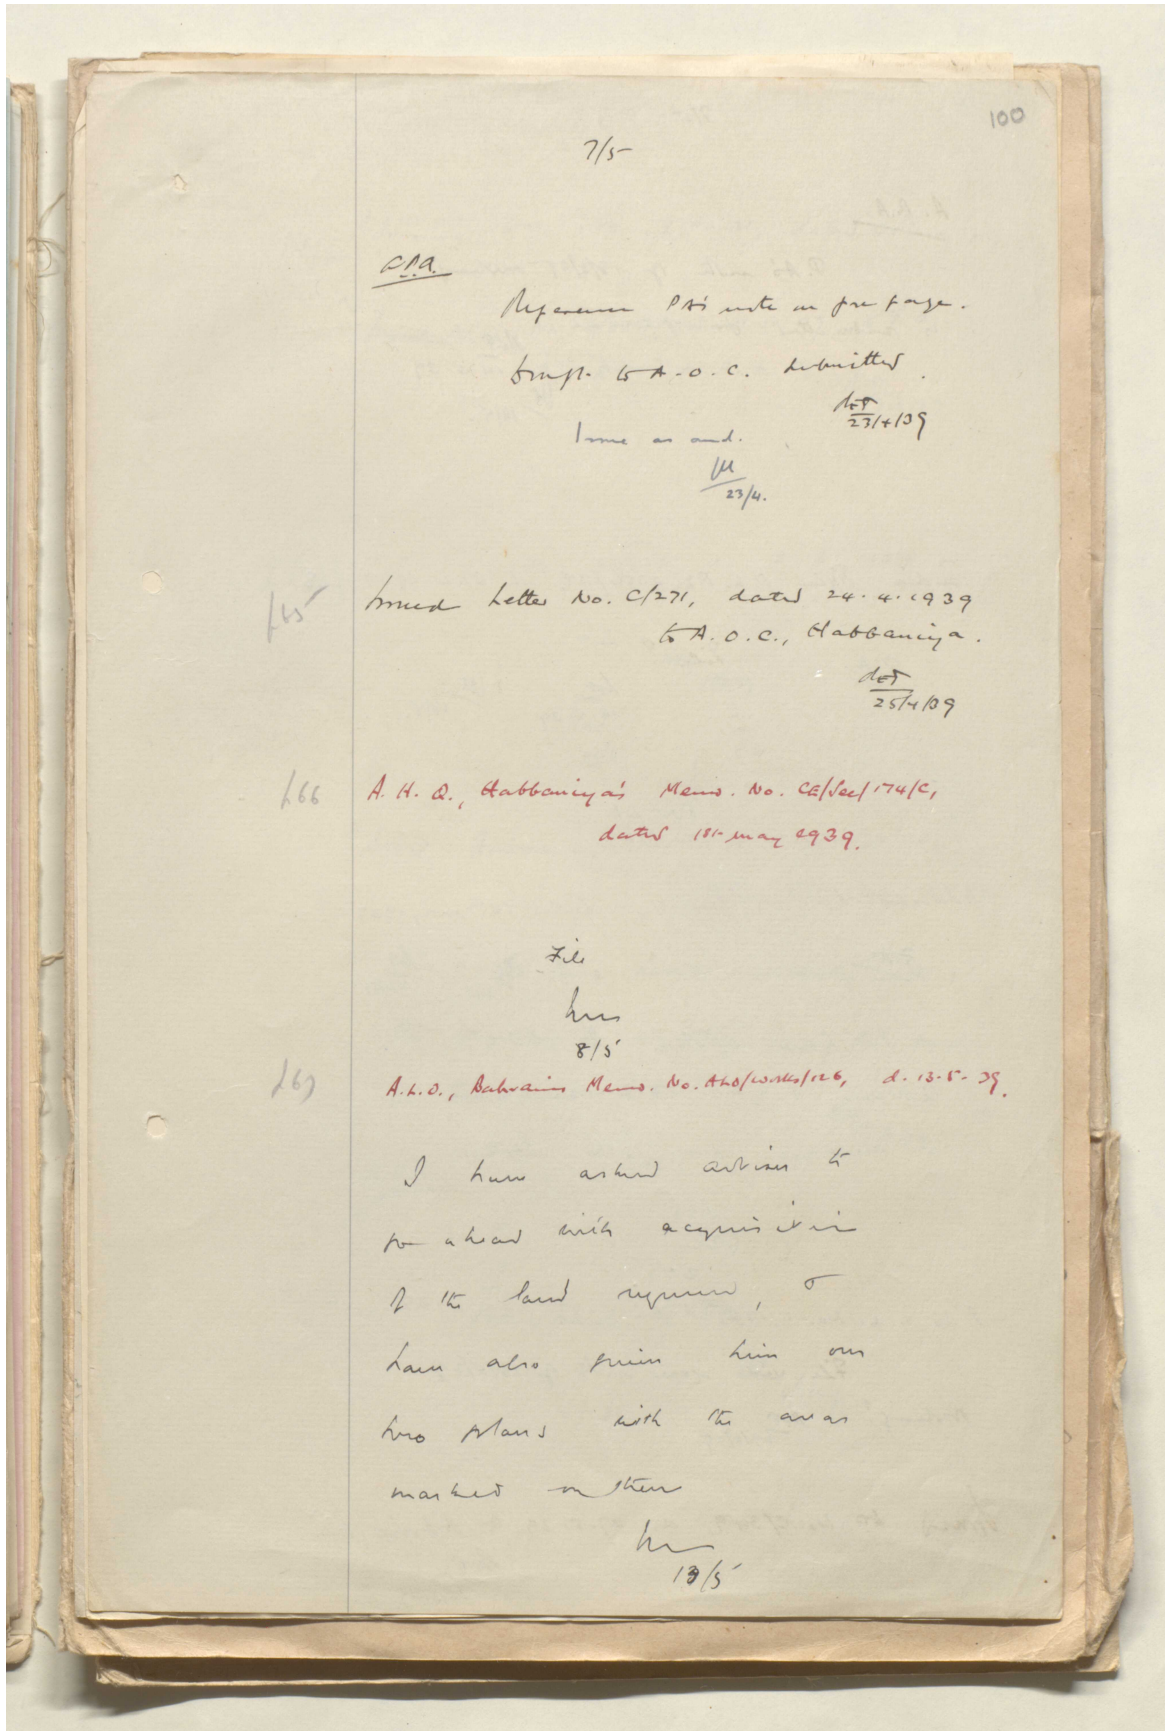 100
7/5
A.P.A.
Reference PA's note on pre page.
Draft to A.O.C. submitted.
23/4/39
Issue as amd.
23/4.
£65
Issued Letter No. C/271, dated 24.4.1939
to A.O.C., Habbaniya.
25/4/39
£66
A.H.Q., Habbaniya's Memo. No. CE/Sec/174/C,
dated 1st May 1939.
File
8/5
£67
A.L.O., Bahrain's Memo. No. ALO/Works/126, d. 13-5-39.
I have asked adviser to
go ahead with acquisition
of the land required, &
have also given him our
two plans with the areas
marked on them
13/5